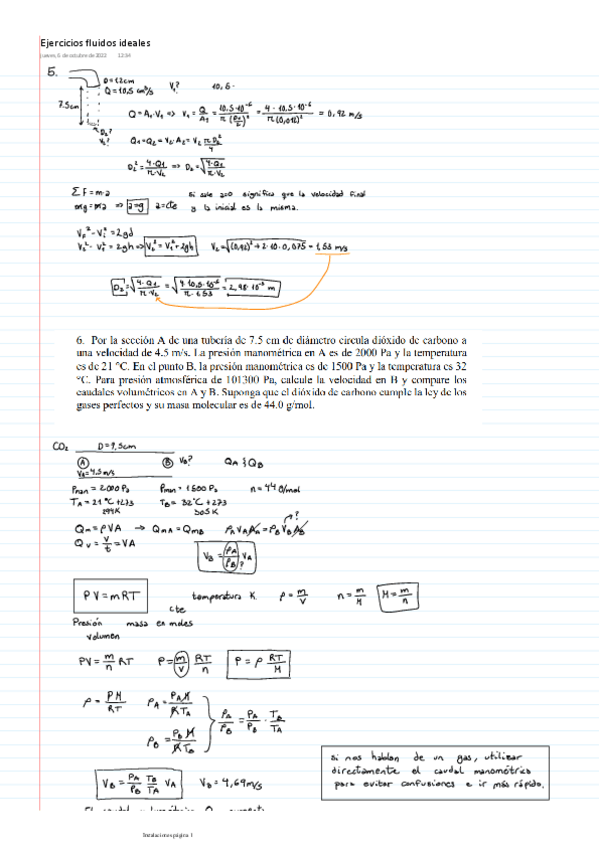 Ejercicios fluidos ideales
jueves, 6 de octubre de 2022 12:34
5.
D=1,2cm
Q=10,5 cm³/s V₁? 10,5·
7.5cm
D₂?
V₂?
Q = A₁·V₁ => V₁ = Q/A₁ = 10,5·10⁻⁶/π(D₁/2)² = 4·10,5·10⁻⁶/π(0,012)² = 0,92 m/s
Q₁=Q₂ = V₂·A₂ = V₂ πD₂²/4
D₂² = 4·Q₁/π·V₂ => D₂ = √(4·Q₁/π·V₂)
ΣF = m·a
mg = ma => a=g a=cte
si sale a=0 significa que la velocidad final
y la inicial es la misma.
V_F² - V_i² = 2gd
V₂² - V₁² = 2gh => V₂² = V₁² + 2gh V₂ = √((0,92)² + 2·10·0,075) = 1,53 m/s
D₂ = √(4·Q₁/π·V₂) = √(4·10,5·10⁻⁶/π·1,53) = 2,96·10⁻³ m
6. Por la sección A de una tubería de 7.5 cm de diámetro circula dióxido de carbono a
una velocidad de 4.5 m/s. La presión manométrica en A es de 2000 Pa y la temperatura
es de 21 °C. En el punto B, la presión manométrica es de 1500 Pa y la temperatura es 32
°C. Para presión atmosférica de 101300 Pa, calcule la velocidad en B y compare los
caudales volumétricos en A y B. Suponga que el dióxido de carbono cumple la ley de los
gases perfectos y su masa molecular es de 44.0 g/mol.
CO₂ D=7,5cm
A B V_B? Q_A y Q_B
V_A=4,5 m/s
Pman = 2000 Pa Pman = 1500 Pa n = 44 G/mol
T_A = 21 °C+273 T_B = 32°C+273
294K 305K
Q_m = ρVA → Q_mA = Q_mB ρ_A V_A A_A = ρ_B V_B A_B ?
Q_V = V/t = VA
V_B = ρ_A/ρ_B V_A ?
PV = mRT temperatura K. ρ = m/V n = m/M M = m/n
cte
Presión masa en moles
volumen
PV = m/n RT P = m/V RT/n P = ρ RT/M
ρ = PM/RT ρ_A = P_A M/R T_A
ρ_B = P_B M/R T_B
ρ_A/ρ_B = P_A/P_B · T_B/T_A
V_B = P_A/P_B T_B/T_A V_A V_B = 4,69 m/s
si nos hablan de un gas, utilizar
directamente el caudal manométrico
para evitar confusiones e ir más rápido.
Instalaciones página 1